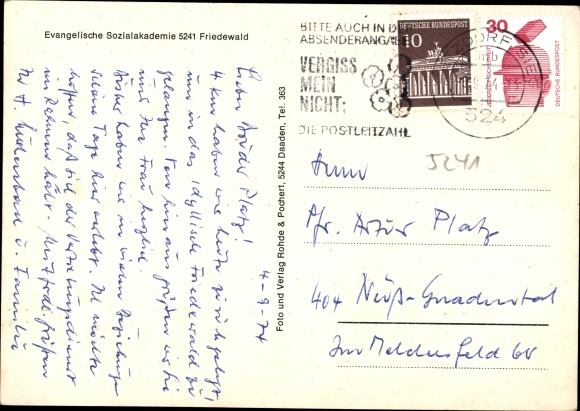 Evangelische Sozialakademie 5241 Friedewald
BITTE AUCH IN D
ABSENDERANG
VERGISS
MEIN
NICHT:
DIE POSTLEITZAHL
DEUTSCHE BUNDESPOST
10
30
DEUTSCHE BUNDESPOST
524
5241
Foto und Verlag Rohde & Pochert, 5244 Daaden, Tel. 363
4-9-74
Lieber Bruder Platz!
4 km haben wir heute zurückgelegt,
um in das idyllische Friedewald zu
gelangen. Von hier aus grüßen wir Sie
und Ihre Frau herzlich.
haben wir in vielen
schöne Tage hier verlebt. Ich möchte
hoffen, daß sich der
im Rahmen hält. Mit Grüßen
Ihr H. u. Familie
Herrn
Pfr. Artur Platz
404 Neuß-Gnadental
Im Meldersfeld 68